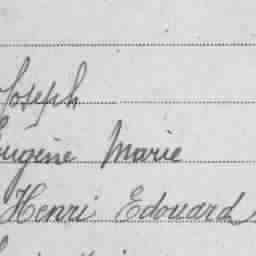 Joseph
Eugène Marie
Henri Edouard